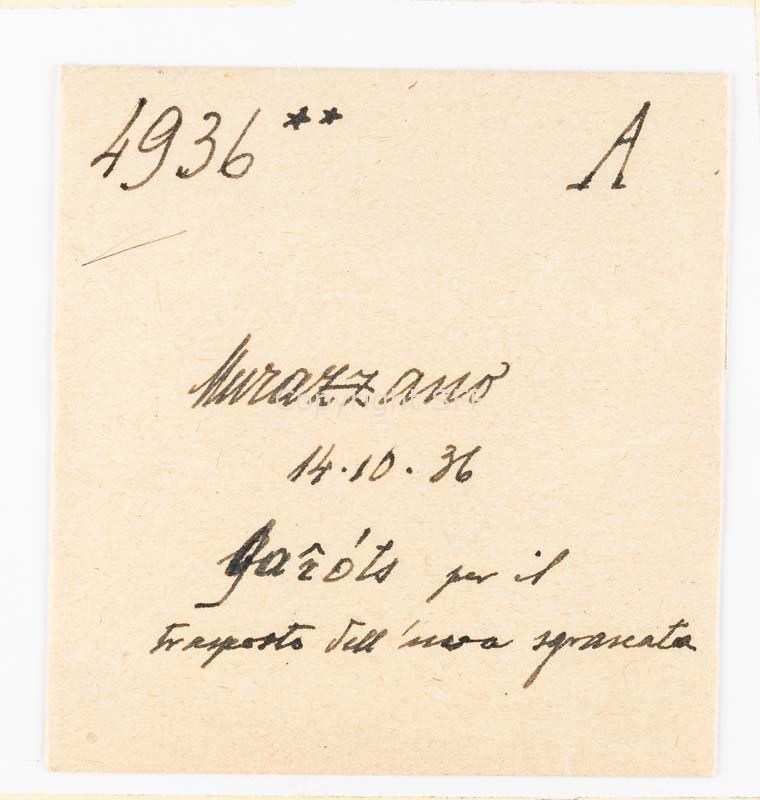 4936** A
Murazzano
14.10.36
per il
trasporto dell'uva